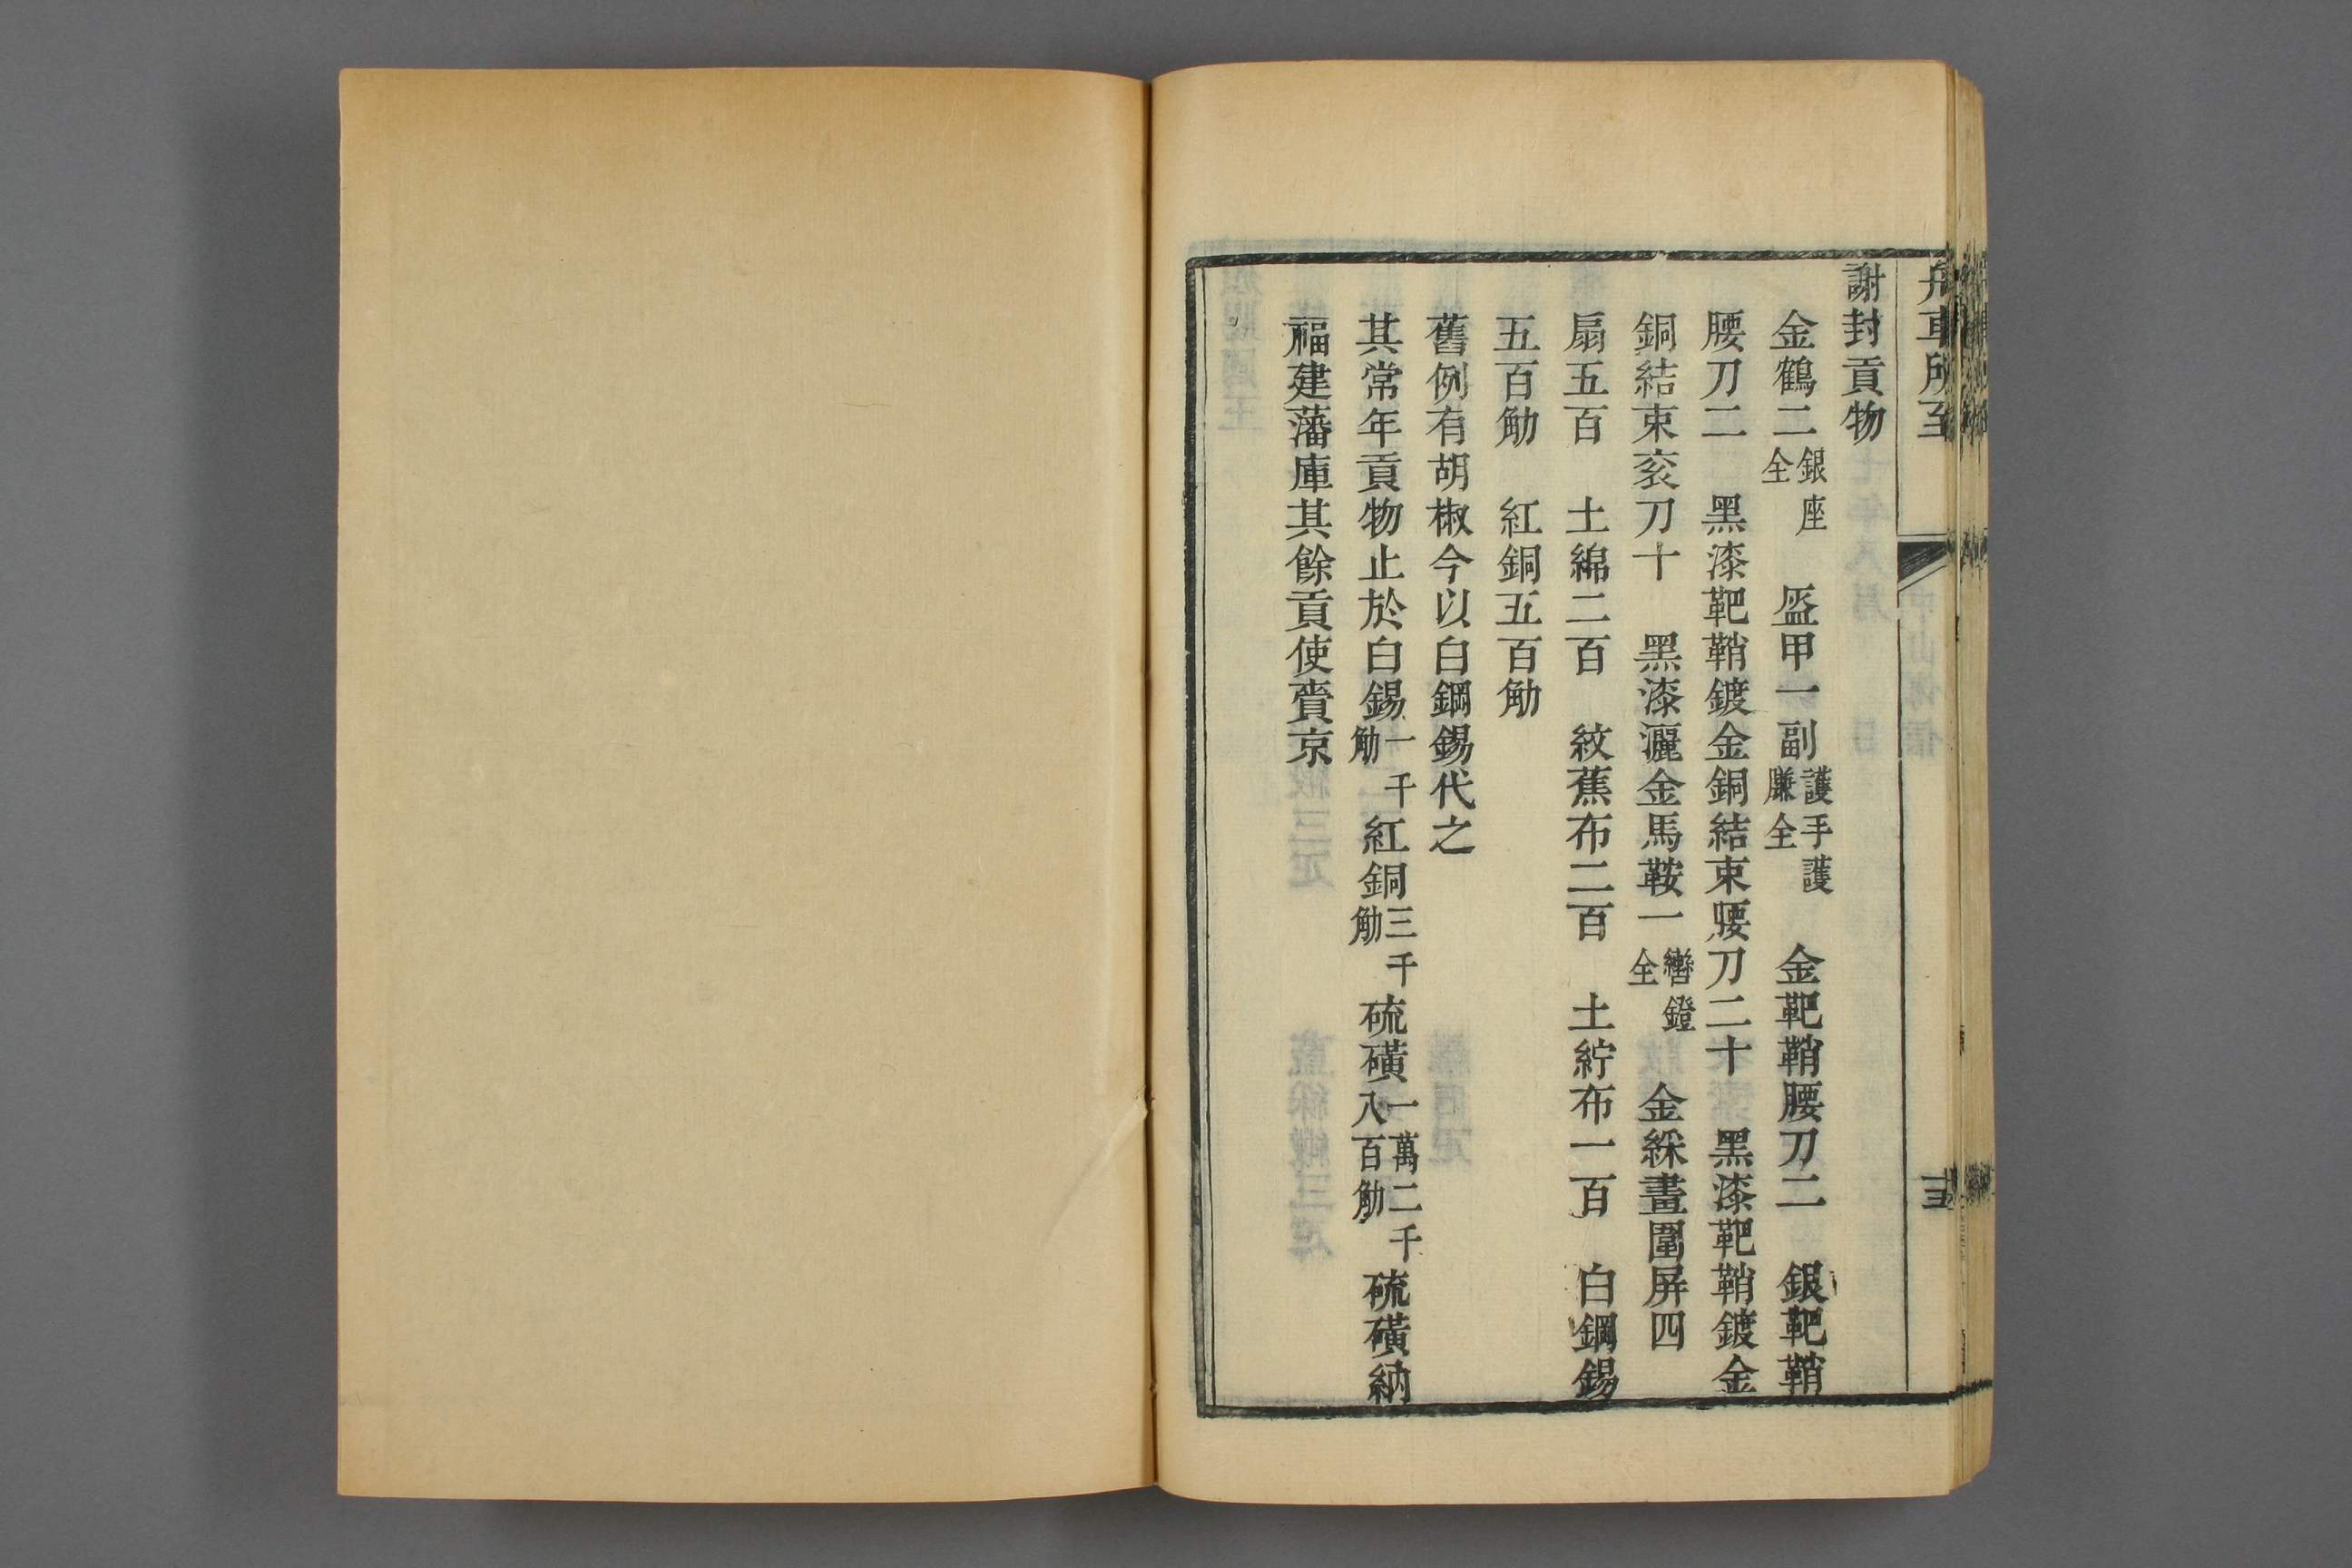 舟車所至
三
謝封貢物
金鶴二銀座全 盔甲一副護手護臁全 金靶鞘腰刀二 銀靶鞘
腰刀二 黑漆靶鞘鍍金銅結束腰刀二十 黑漆靶鞘鍍金
銅結束衮刀十 黑漆灑金馬鞍一轡鐙全 金綵畫圍屏四
扇五百 土綿二百 紋蕉布二百 土紵布一百 白鋼錫
五百觔 紅銅五百觔
舊例有胡椒今以白鋼錫代之
其常年貢物止於白錫一千觔紅銅三千觔硫磺一萬二千八百觔硫磺納
福建藩庫其餘貢使賫京